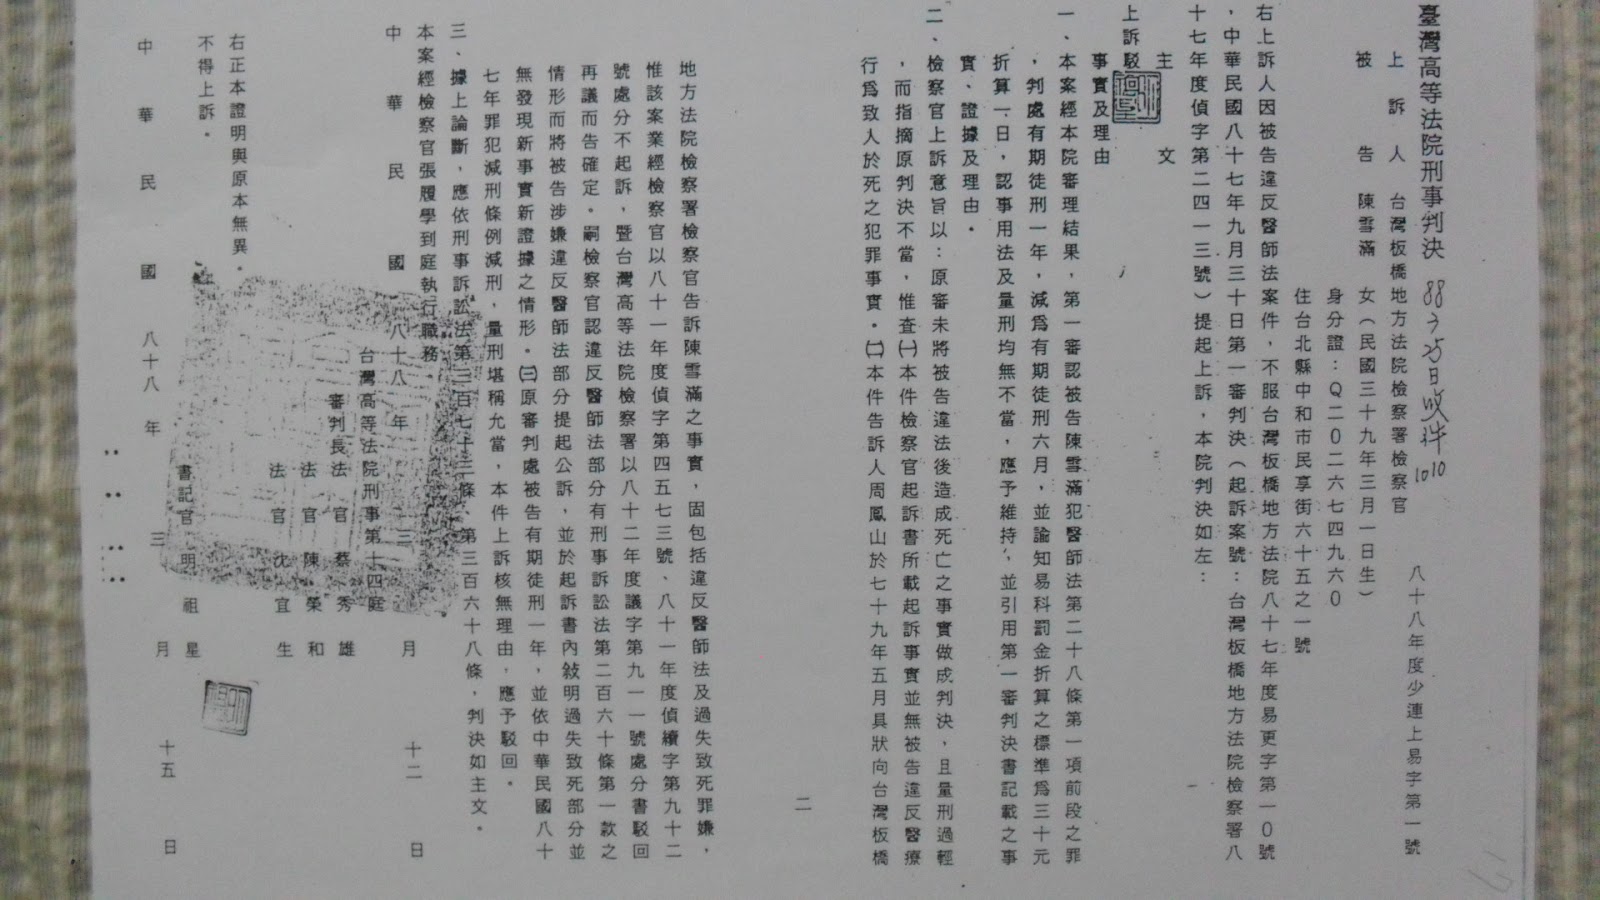 臺灣高等法院刑事判決
八十八年度少連上易字第一號
上訴人 台灣板橋地方法院檢察署檢察官
被告 陳雪滿 女(民國三十九年三月一日生)
身分證:Q二0二六七四九六0
住台北縣中和市民享街六十五之一號
右上訴人因被告違反醫師法案件,不服台灣板橋地方法院八十七年度易更字第一0號
,中華民國八十七年九月三十日第一審判決(起訴案號:台灣板橋地方法院檢察署八
十七年度偵字第二四一三號)提起上訴,本院判決如左:
主文
上訴駁回
事實及理由
一、本案經本院審理結果,第一審認被告陳雪滿犯醫師法第二十八條第一項前段之罪
,判處有期徒刑一年,減為有期徒刑六月,並諭知易科罰金折算之標準為三十元
折算一日,認事用法及量刑均無不當,應予維持,並引用第一審判決書記載之事
實、證據及理由。
二、檢察官上訴意旨以:原審未將被告違法後造成死亡之事實做成判決,且量刑過輕
,而指摘原判決不當,惟查㈠本件檢察官起訴書所載起訴事實並無被告違反醫療
行為致人於死之犯罪事實。㈡本件告訴人周鳳山於七十九年五月具狀向台灣板橋
二
地方法院檢察署檢察官告訴陳雪滿之事實,固包括違反醫師法及過失致死罪嫌,
惟該案業經檢察官以八十一年度偵字第四五七三號、八十一年度偵續字第九十二
號處分不起訴,暨台灣高等法院檢察署以八十二年度議字第九一一號處分書駁回
再議而告確定。嗣檢察官認違反醫師法部分有刑事訴訟法第二百六十條第一款之
情形而將被告涉嫌違反醫師法部分提起公訴,並於起訴書內敍明過失致死部分並
無發現新事實新證據之情形。㈢原審判處被告有期徒刑一年,並依中華民國八十
七年罪犯減刑條例減刑,量刑堪稱允當,本件上訴核無理由,應予駁回。
三、據上論斷,應依刑事訴訟法第三百七十三條、第三百六十八條,判決如主文。
本案經檢察官張履學到庭執行職務
中華民國八十八年三月十二日
台灣高等法院刑事第十四庭
審判長法官 蔡秀雄
法官 陳榮和
法官 沈宜生
右正本證明與原本無異。
不得上訴。
書記官 明祖星
中華民國八十八年三月十五日